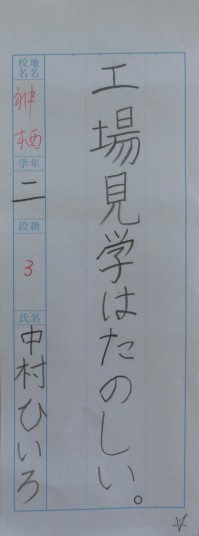 工場見学はたのしい。
地名
校名
神栖
学年
二
段級
3
氏名
中村ひいろ